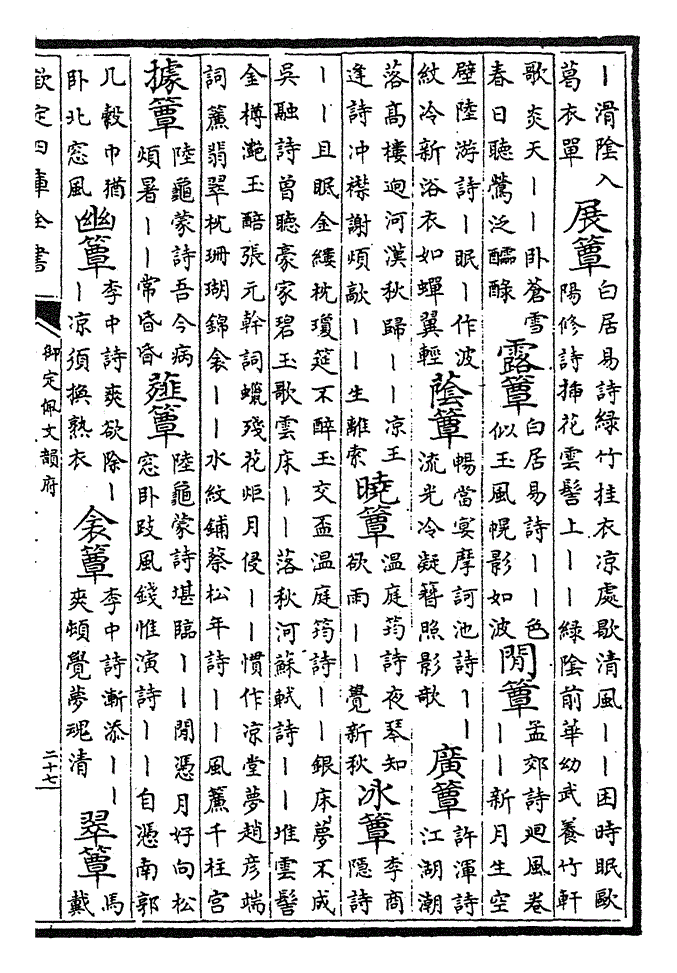 ｜滑陰入
葛衣單
展簟
白居易詩緑竹挂衣凉處歇清風｜｜困時眠歐
陽修詩揷花雲髻上｜｜緑陰前華幼武養竹軒
歌炎天｜｜卧蒼雪
春日聽鶯泛醹醁
露簟
白居易詩｜｜色
似玉風幌影如波
閒簟
孟郊詩廻風卷
｜｜新月生空
壁陸游詩｜眠｜作波
紋冷新浴衣如蟬翼輕
蔭簟
暢當宴摩訶池詩｜｜
流光冷凝簪照影欹
廣簟
許渾詩
江湖潮
落高樓迥河漢秋歸｜｜凉王
逢詩冲襟謝煩歊｜｜生離索
曉簟
温庭筠詩夜琴知
欲雨｜｜覺新秋
冰簟
李商
隱詩
｜｜且眠金縷枕瓊筵不醉玉交盃温庭筠詩｜｜銀床夢不成
吳融詩曾聽豪家碧玉歌雲床｜｜落秋河蘇軾詩｜｜堆雲髻
金樽灔玉醅張元幹詞蠟殘花炬月侵｜｜慣作凉堂夢趙彦端
詞簾翡翠枕珊瑚錦衾｜｜水紋鋪蔡松年詩｜｜風簾千柱宫
據簟
陸龜蒙詩吾今病
煩暑｜｜常昏昏
薤簟
陸龜蒙詩堪臨｜｜閒憑月好向松
窓卧跂風錢惟演詩｜｜自憑南郭
几縠巾猶
卧北窓風
幽簟
李中詩爽欲除｜
｜凉須換熟衣
衾簟
李中詩漸添｜｜
爽頓覺夢魂清
翠簟
馬
戴
欽定四庫全書
御定佩文韻府
二十七